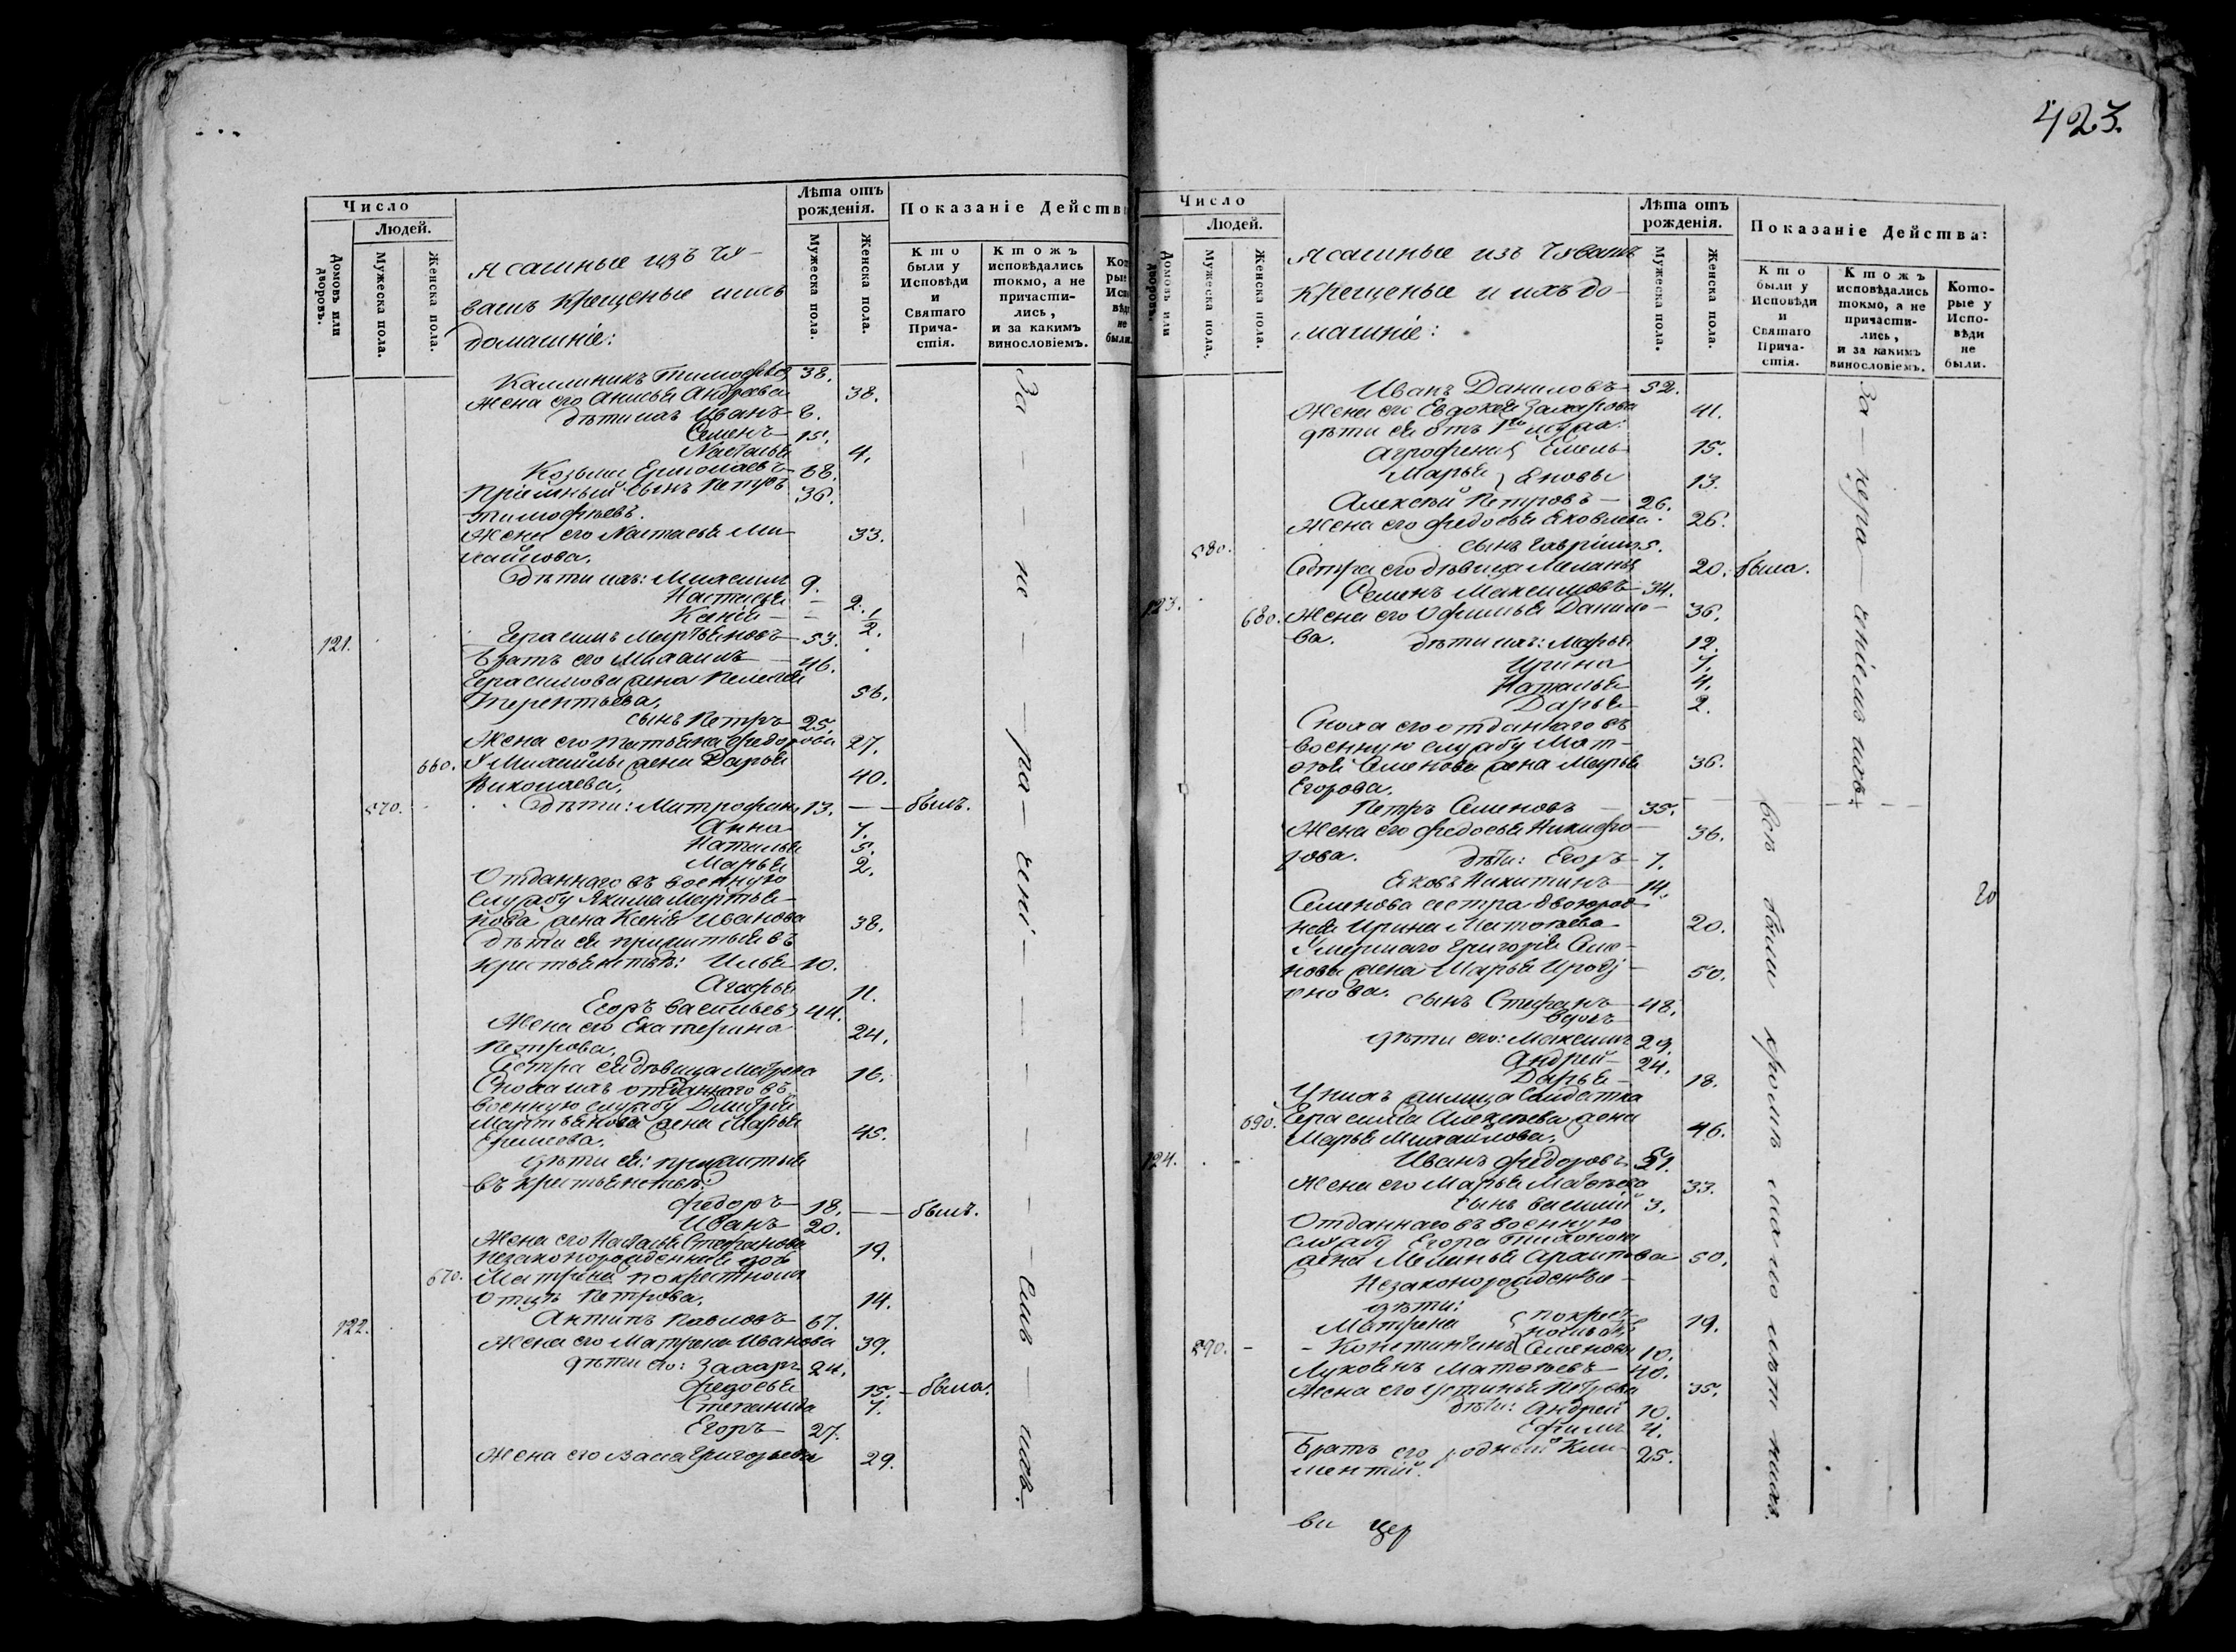 Число
Людей.
Домовъ или дворовъ.
Мужеска пола.
Женска пола.
Ясашные изъ Чу-
вашъ крещеные и ихъ
домашніе:
Лѣта отъ
рожденія.
Мужеска пола.
Женска пола.
Показаніе Действ
Кто
были у
Исповѣди
и
Святаго
Прича-
стія.
Ктожъ
исповѣдались
токмо, а не
причасти-
лись,
и за какимъ
винословіемъ.
Каллиникъ Тимофѣевъ 38.
Жена его Анисья Андреева 38.
дѣти ихъ Иванъ
Семенъ 15.
Наталья 4.
Козьма Ермолаевъ 68.
Пріемный сынъ Петръ 36.
Тимофѣевъ.
Жена его Настасья Ми- 33.
хайлова.
дѣти ихъ: Максимъ 9.
Настасья 2.
Ксенія 1/2.
121. Герасимъ Мартьяновъ 53.
Братъ его Михаилъ 46.
Герасимова жена Пелагея 56.
Терентьева.
сынъ Петръ 25.
Жена его Татьяна Федорова 27.
660. У Михайлы жена Дарья 40.
Николаева.
570. дѣти: Митрофанъ 13. былъ.
Анна 7.
Наталья 5.
Марья 2.
Отданнаго въ военную
службу Якима Мартья-
нова жена Ксенія Иванова 38.
дѣти ея прижитыя въ
крестьянствѣ: Илья 10.
Агафья 11.
Егоръ Васильевъ 44.
Жена его Екатерина 24.
Петрова.
Сестра ея дѣвица Матрена 16.
Сноха ихъ отданнаго въ
военную службу Дмитрія
Мартьянова жена Марья 45.
дѣти ея: прижитыя
въ крестьянствѣ:
Федоръ 18. былъ.
Иванъ 20.
Жена его Наталья Стефанова 19.
Незаконорожденная дочь
670. Матрена по крестному
отцѣ Петрова. 14.
122. Антипъ Павловъ 67.
Жена его Матрена Иванова 39.
дѣти его: Захаръ 24.
Федосья 15. была.
Степанида 7.
Егоръ 27.
Жена его Васса Григорьева 29.
За не ра-дѣні-емъ ихъ.
423.
Число
Людей.
Домовъ или дворовъ.
Мужеска пола.
Женска пола.
Ясашные изъ Чувашъ
крещеные и ихъ до-
машніе:
Лѣта отъ
рожденія.
Мужеска пола.
Женска пола.
Показаніе Действа:
Кто
были у
Исповѣди
и
Святаго
Прича-
стія.
Ктожъ
исповѣдались
токмо, а не
причасти-
лись,
и за какимъ
винословіемъ.
Кото-
рые у
Испо-
вѣди
не
были.
Иванъ Даниловъ 52.
Жена его Евдокея Захарова 41.
дѣти ея отъ 1го мужа:
Агрофена Емель- 15.
Марья яновы 13.
Алексѣй Петровъ 26.
Жена его Федосья Яковлева 26.
580. сынъ Гаврилъ 5.
Сестра его дѣвица Меланья 20. была.
123. Семенъ Максимовъ 34.
680. Жена его Офимья Данило- 36.
ва. дѣти ихъ: Марья 12.
Ирина 7.
Наталья 4.
Дарья 2.
Сноха его отданнаго въ
военную службу Мат-
фея Семенова жена Марья 36.
Егорова.
Петръ Семеновъ 35.
Жена его Федосья Никифо- 36.
рова. дѣти: Егоръ 7.
Яковъ Никитинъ 14.
Семенова сестра двоюрод-
ная Ирина Матвѣева 20.
Умершаго Григорія Семе-
нова жена Марья Ироді- 50.
онова. сынъ Стефанъ 48.
дѣти его: Максимъ 29.
Андрей 24.
Дарья 18.
У нихъ жилица Солдатка
690. Герасима Алексѣева жена
Марья Михаилова. 46.
124. Иванъ Федоровъ 51.
Жена его Марья Матвѣева 33.
сынъ Василій 3.
Отданнаго въ военную
службу Егора Тихонова
жена Меланья Архипова 50.
Незаконорожденные
дѣти:
Матрена 19.
590. Константинъ Семеновы 10.
Лукоянъ Матвѣевъ 40.
Жена его Устинья Петрова 35.
дѣти: Андрей 10.
Ефимъ 4.
Братъ его родный Кли- 25.
ментій.
За нера-дѣніемъ ихъ.
Всѣ были кромѣ малолѣтнихъ.
20
ви цер